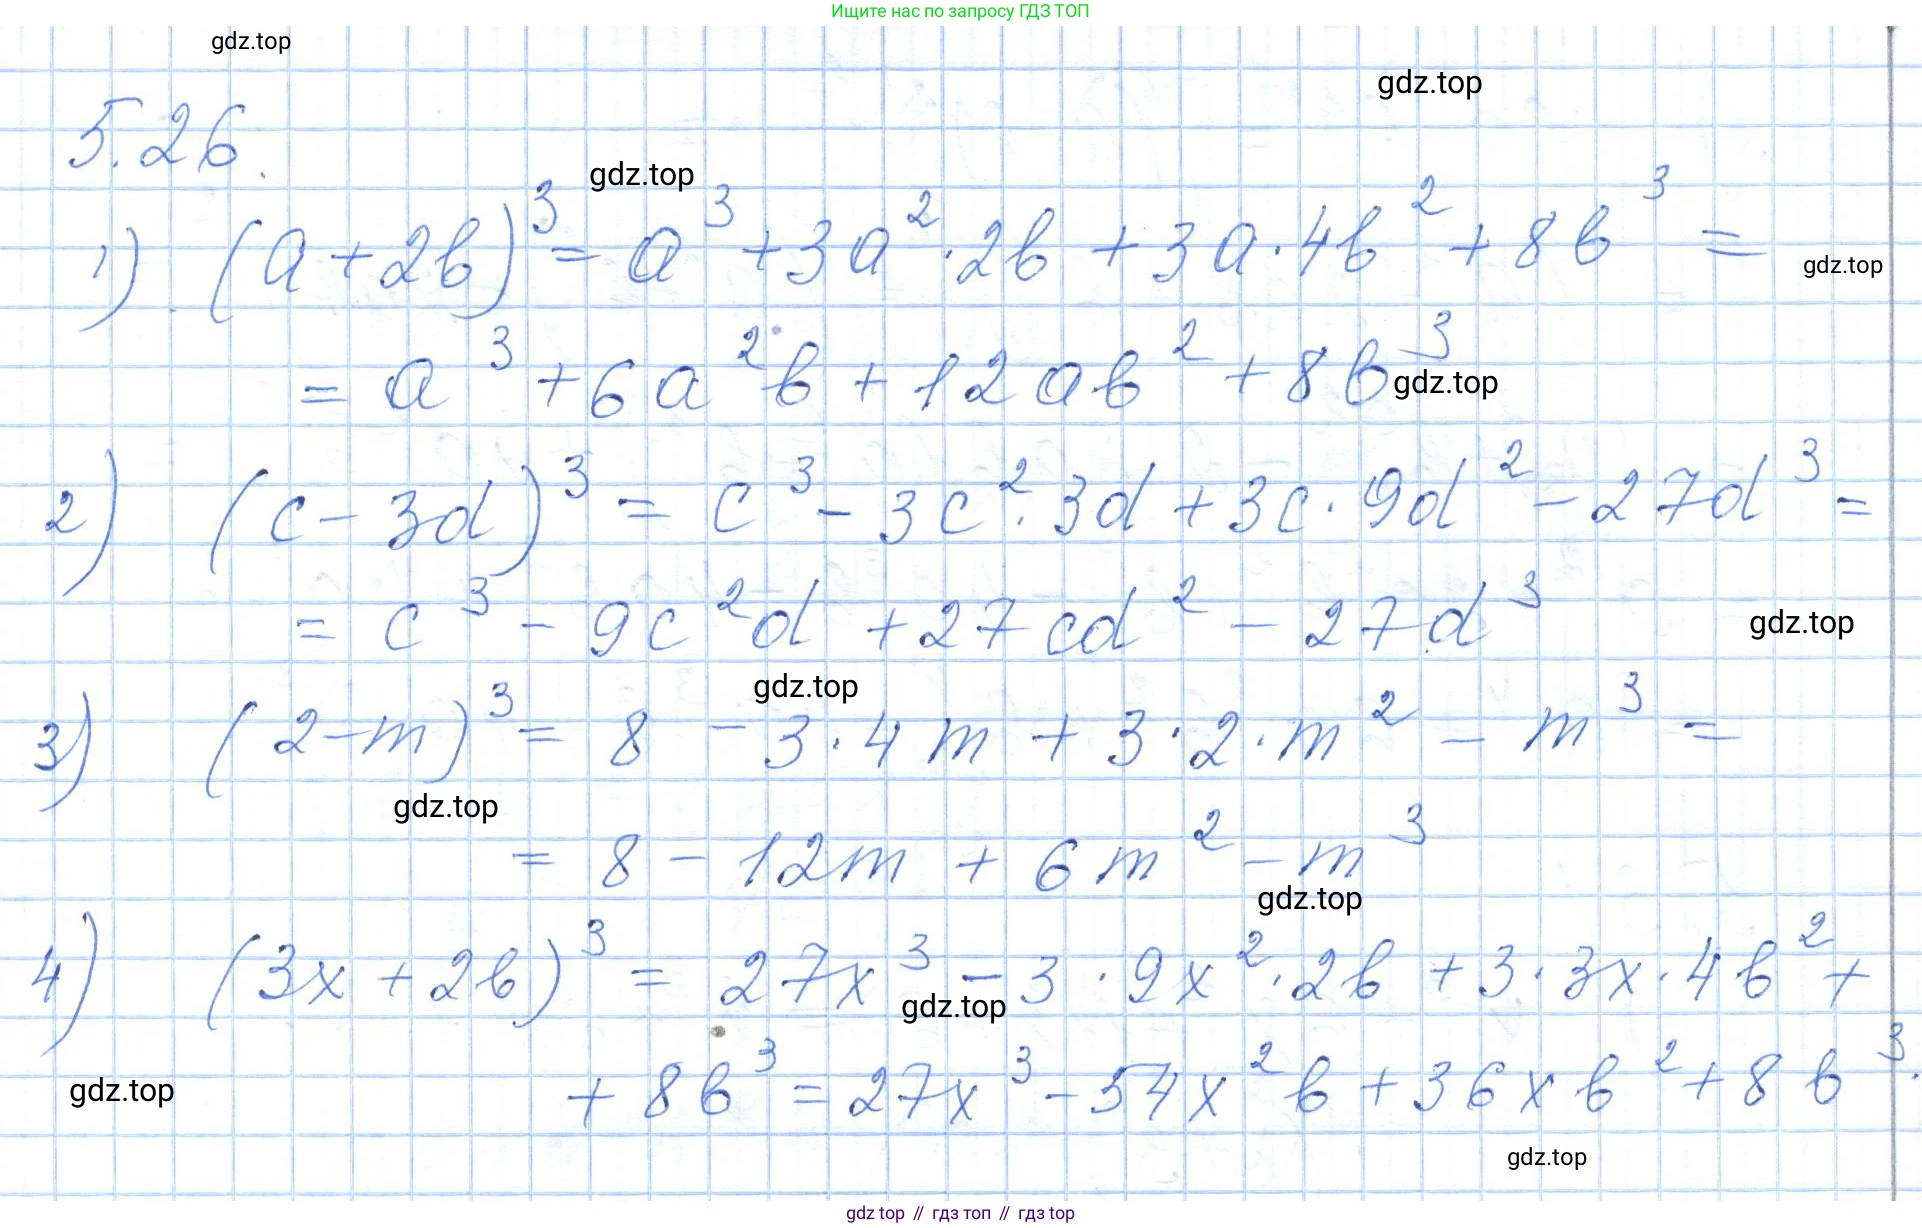 Ищите нас по запросу ГДЗ ТОП
gdz.top
gdz.top
5.26.
gdz.top
1) (a+2b)³ = a³ + 3a²·2b + 3a·4b² + 8b³ =
gdz.top
= a³ + 6a²b + 12ab² + 8b³
gdz.top
2) (c-3d)³ = c³ - 3c²·3d + 3c·9d² - 27d³ =
= c³ - 9c²d + 27cd² - 27d³
gdz.top
gdz.top
3) (2-m)³ = 8 - 3·4m + 3·2·m² - m³ =
gdz.top
= 8 - 12m + 6m² - m³
gdz.top
4) (3x+2b)³ = 27x³ - 3·9x²·2b + 3·3x·4b² +
gdz.top
+ 8b³ = 27x³ - 54x²b + 36xb² + 8b³.
gdz.top
gdz.top
gdz top // гдз топ // gdz top